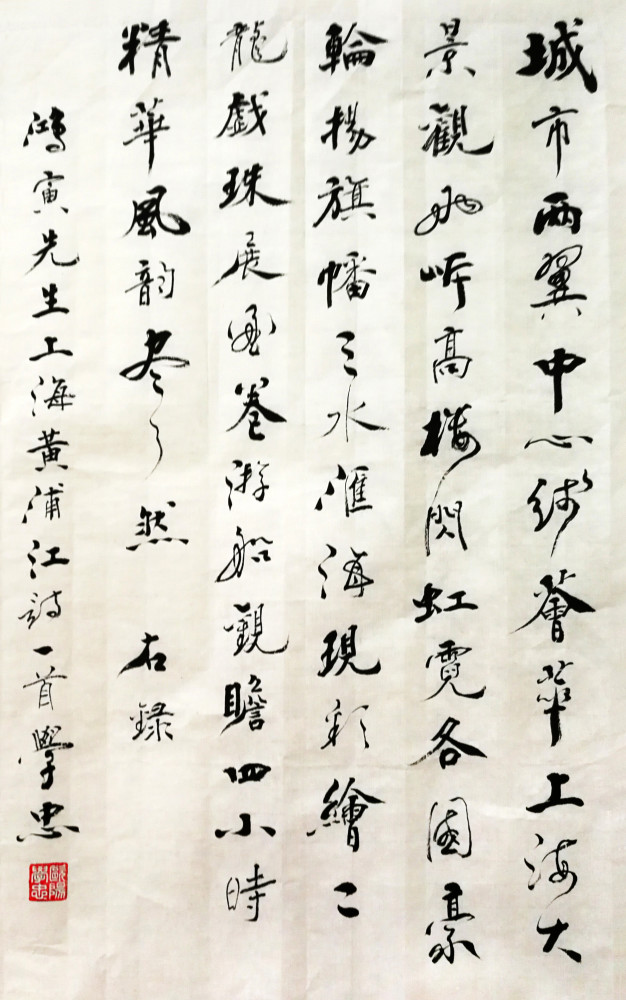 城市兩翼中心線薈華上海大
景觀兩岸高樓閃虹霓各國豪
輪揚旗幡三水滙海現彩繪二
龍戲珠展画卷游船觀瞻四小時
精華風韵盡了然 右錄
鴻寅先生上海黃浦江詩一首學忠
歐陽學忠